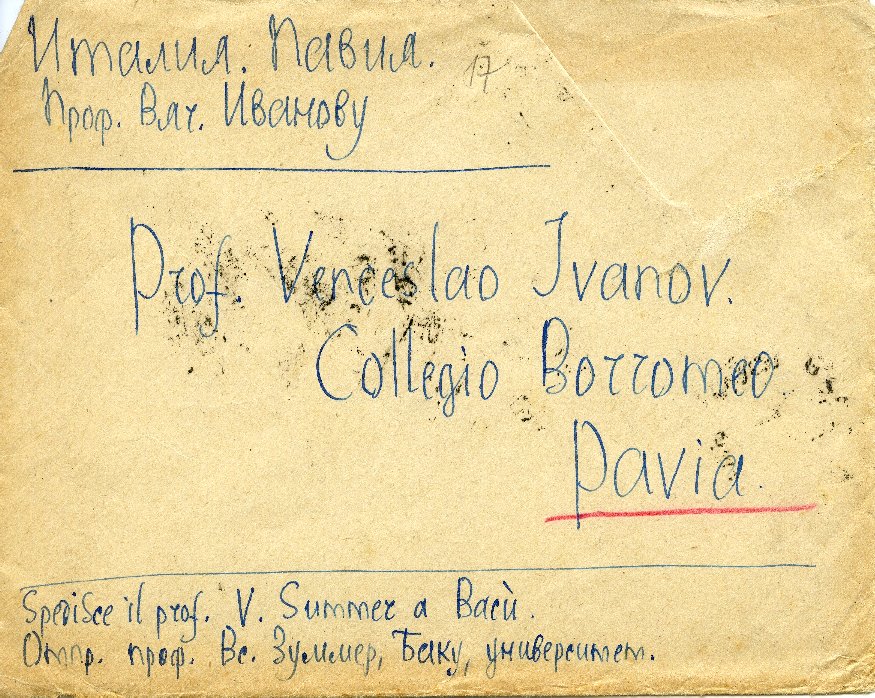 Италия. Павия.
17
Проф. Вяч. Иванову
Prof. Venceslao Ivanov.
Collegio Borromeo
Pavia.
Spedisce il prof. V. Summer a Bacù.
Отпр. проф. Вс. Зуммер, Баку, университет.